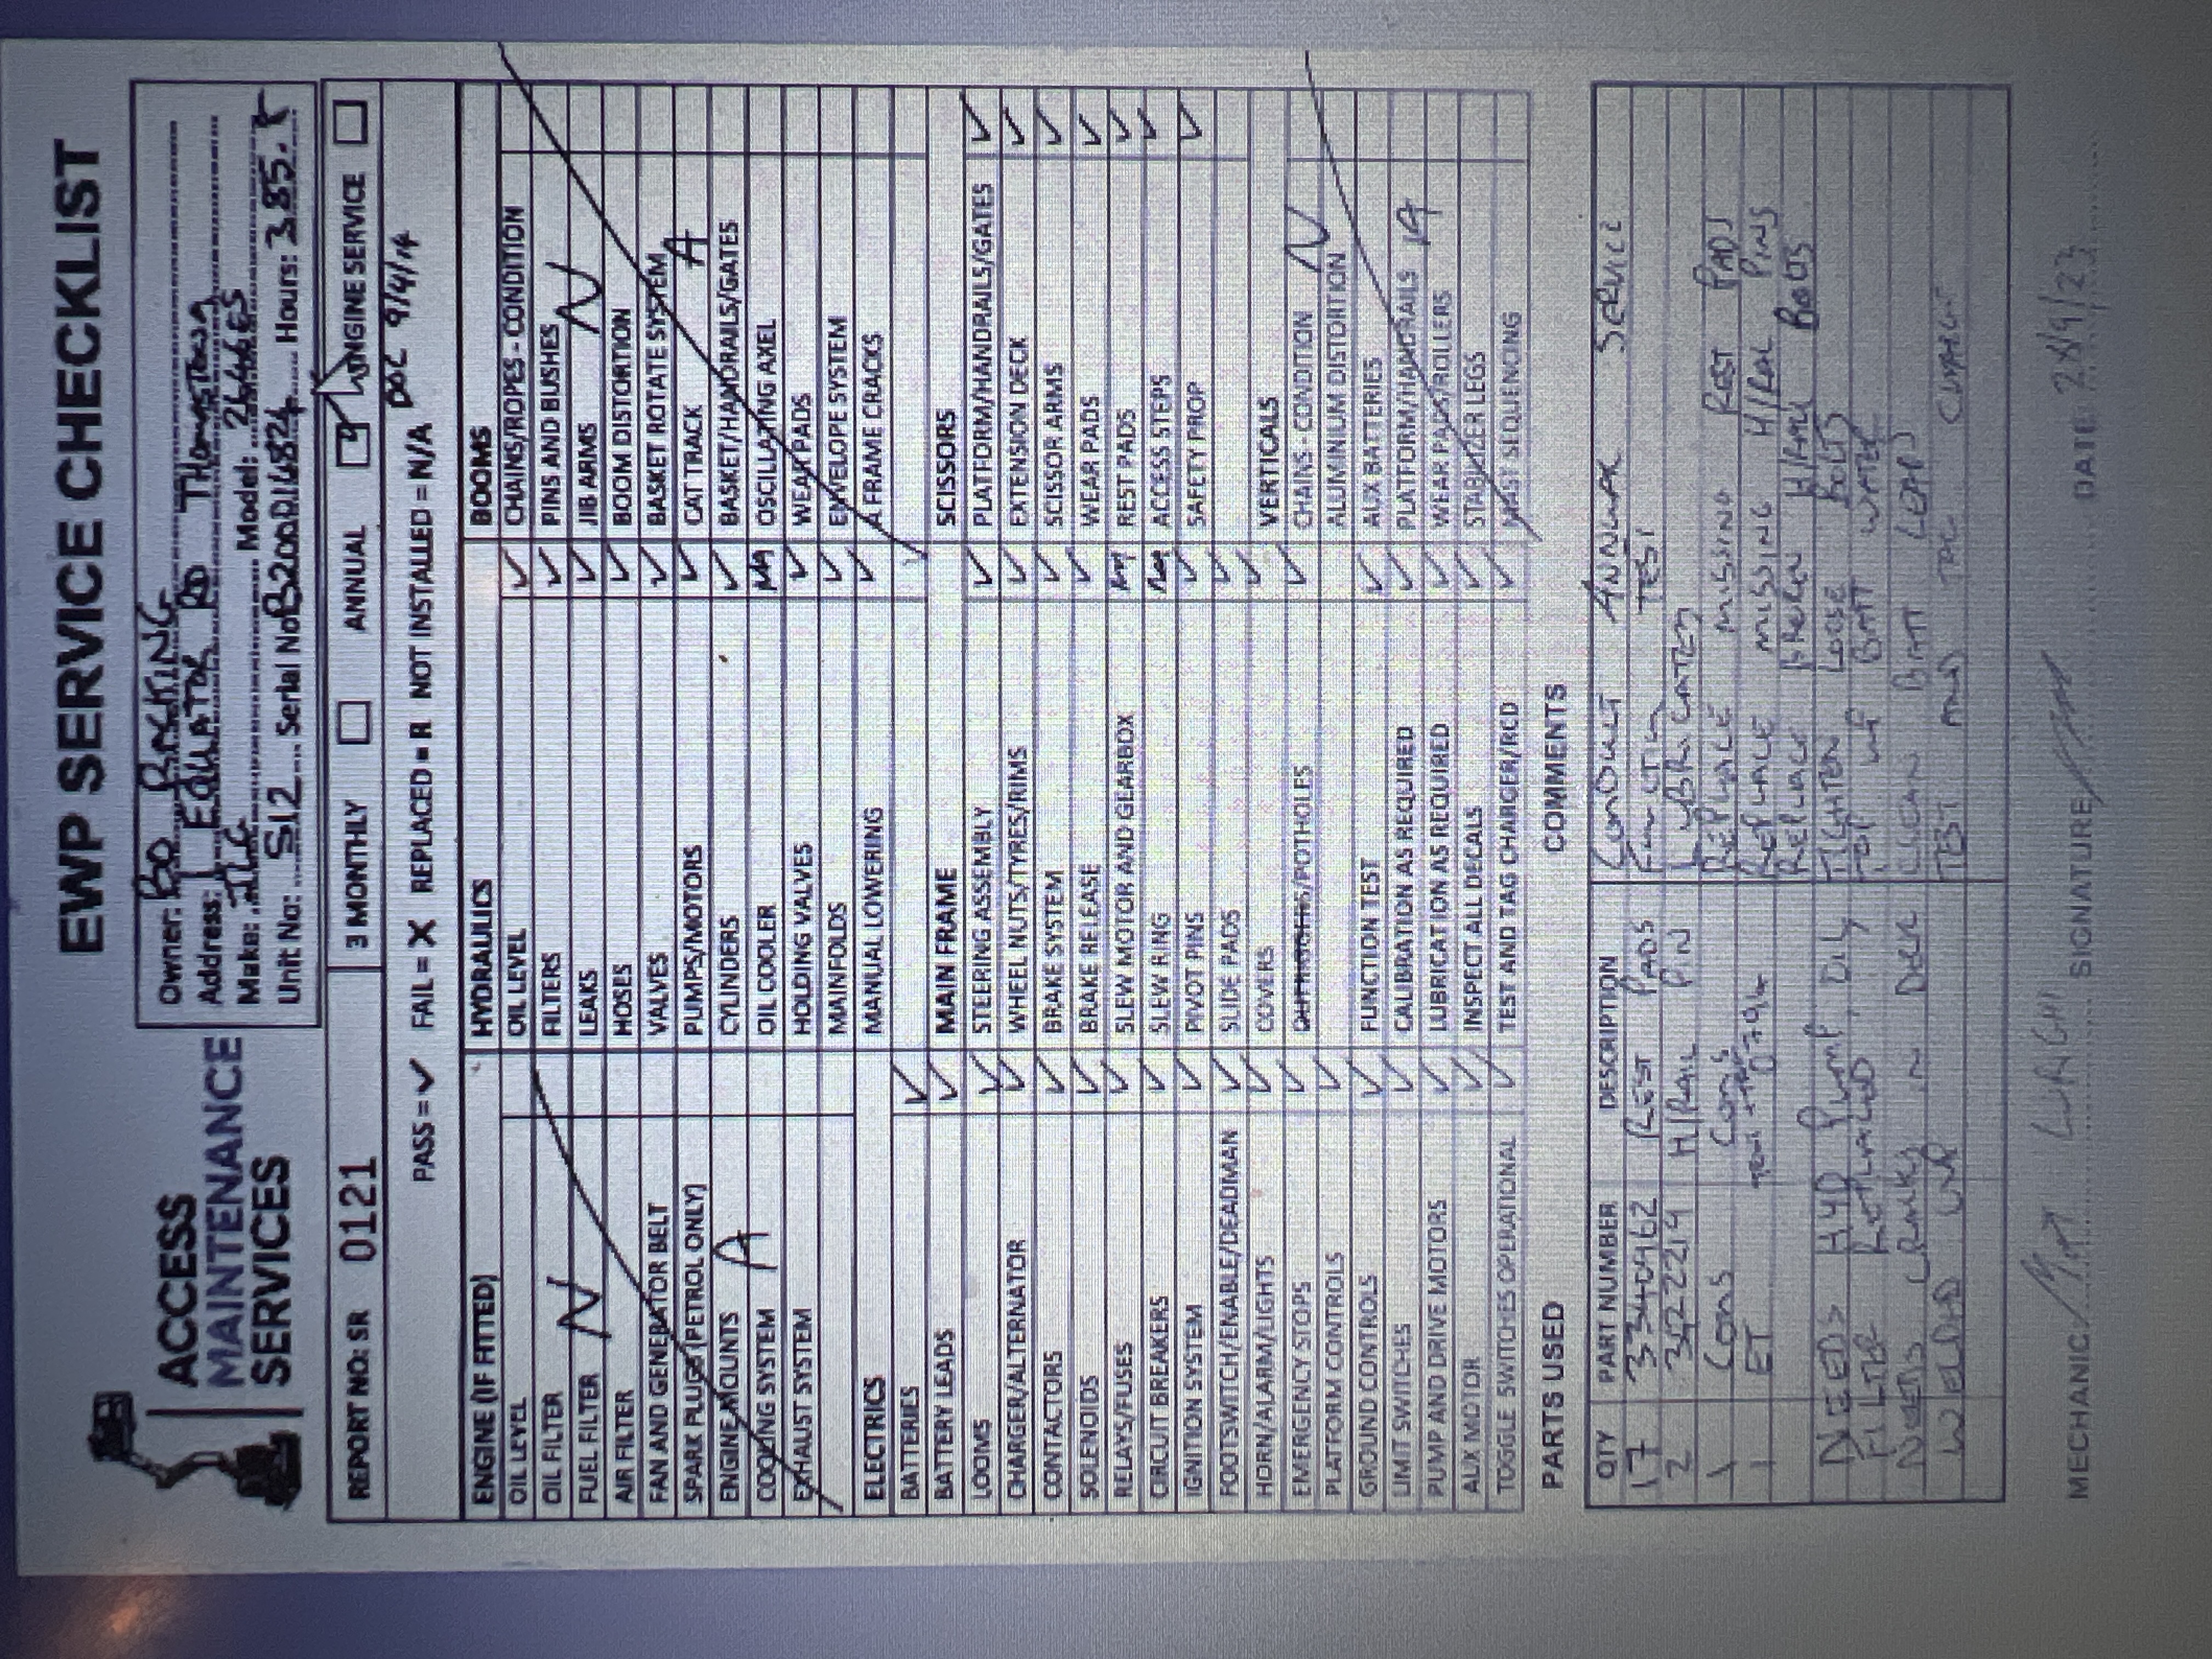 EWP SERVICE CHECKLIST
ACCESS
MAINTENANCE
SERVICES
Owner: BO RACKING
Address: 1 EQUATOR RD THOMSTOWN
Make: JLG Model: 2646ES
Unit No: S12 Serial No: B200016824 Hours: 385.5
REPORT NO: SR 0121
3 MONTHLY
ANNUAL
ENGINE SERVICE
PASS = ✓ FAIL = X REPLACED = R NOT INSTALLED = N/A
DOC 9/4/14
ENGINE (IF FITTED)
OIL LEVEL
OIL FILTER
FUEL FILTER N
AIR FILTER
FAN AND GENERATOR BELT
SPARK PLUGS (PETROL ONLY)
ENGINE MOUNTS
COOLING SYSTEM A
EXHAUST SYSTEM
ELECTRICS
BATTERIES ✓
BATTERY LEADS ✓
LOOMS ✓
CHARGER/ALTERNATOR ✓
CONTACTORS ✓
SOLENOIDS ✓
RELAYS/FUSES ✓
CIRCUIT BREAKERS ✓
IGNITION SYSTEM ✓
FOOTSWITCH/ENABLE/DEADMAN ✓
HORN/ALARM/LIGHTS ✓
EMERGENCY STOPS ✓
PLATFORM CONTROLS ✓
GROUND CONTROLS ✓
LIMIT SWITCHES ✓
PUMP AND DRIVE MOTORS ✓
AUX MOTOR ✓
TOGGLE SWITCHES OPERATIONAL ✓
HYDRAULICS
OIL LEVEL ✓
FILTERS ✓
LEAKS ✓
HOSES ✓
VALVES ✓
PUMPS/MOTORS ✓
CYLINDERS ✓
OIL COOLER NA
HOLDING VALVES ✓
MAINFOLDS ✓
MANUAL LOWERING ✓
MAIN FRAME
STEERING ASSEMBLY ✓
WHEEL NUTS/TYRES/RIMS ✓
BRAKE SYSTEM ✓
BRAKE RELEASE ✓
SLEW MOTOR AND GEARBOX NA
SLEW RING NA
PIVOT PINS ✓
SLIDE PADS ✓
COVERS ✓
OUTRIGGERS/POTHOLES ✓
FUNCTION TEST ✓
CALIBRATION AS REQUIRED ✓
LUBRICATION AS REQUIRED ✓
INSPECT ALL DECALS ✓
TEST AND TAG CHARGER/RCD ✓
BOOMS
CHAINS/ROPES - CONDITION
PINS AND BUSHES
JIB ARMS N
BOOM DISTORTION
BASKET ROTATE SYSTEM
CAT TRACK A
BASKET/HANDRAILS/GATES
OSCILLATING AXEL
WEAR PADS
ENVELOPE SYSTEM
A FRAME CRACKS
SCISSORS
PLATFORM/HANDRAILS/GATES ✓
EXTENSION DECK ✓
SCISSOR ARMS ✓
WEAR PADS ✓
REST PADS ✓
ACCESS STEPS ✓
SAFETY PROP ✓
VERTICALS
CHAINS - CONDITION N
ALUMINUM DISTORTION
AUX BATTERIES
PLATFORM/HANDRAILS A
WEAR PADS/ROLLERS
STABILIZER LEGS
MAST SEQUENCING
PARTS USED
QTY PART NUMBER DESCRIPTION
17 3340462 REST PADS
2 3422214 H/RAIL PIN
1 CONS CONS
1 ET
NEEDS HYD PUMP, OIL,
FILTER REPLACED
NEEDS CRACKS IN DECK
WELDED UP
COMMENTS
CONDUCT ANNUAL SERVICE
FUNCTION TEST
LUBRICATED
REPLACE MISSING REST PADS
REPLACE MISSING H/RAIL PINS
REPLACE BROKEN H/RAIL BOLTS
TIGHTEN LOOSE BOLTS
TOP UP BATT WATER
CLEAN BATT LEADS
TEST AND TAG
MECHANIC SIGNATURE DATE